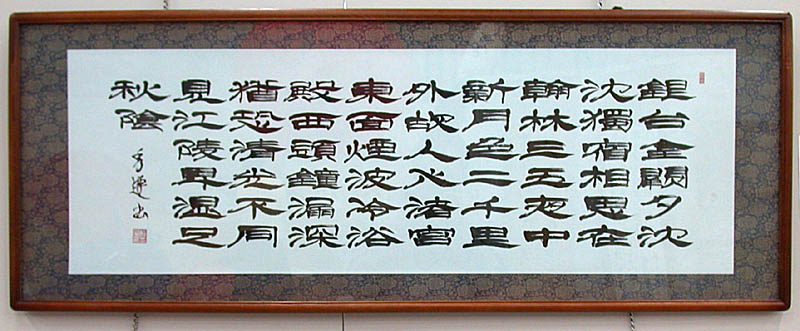 銀台金闕夕沈
沈獨宿相思在
翰林三五夜中
新月色二千里
外故人心渚宮
東面煙波冷浴
殿西頭鐘漏深
猶恐清光不同
見江陵卑湿足
秋陰